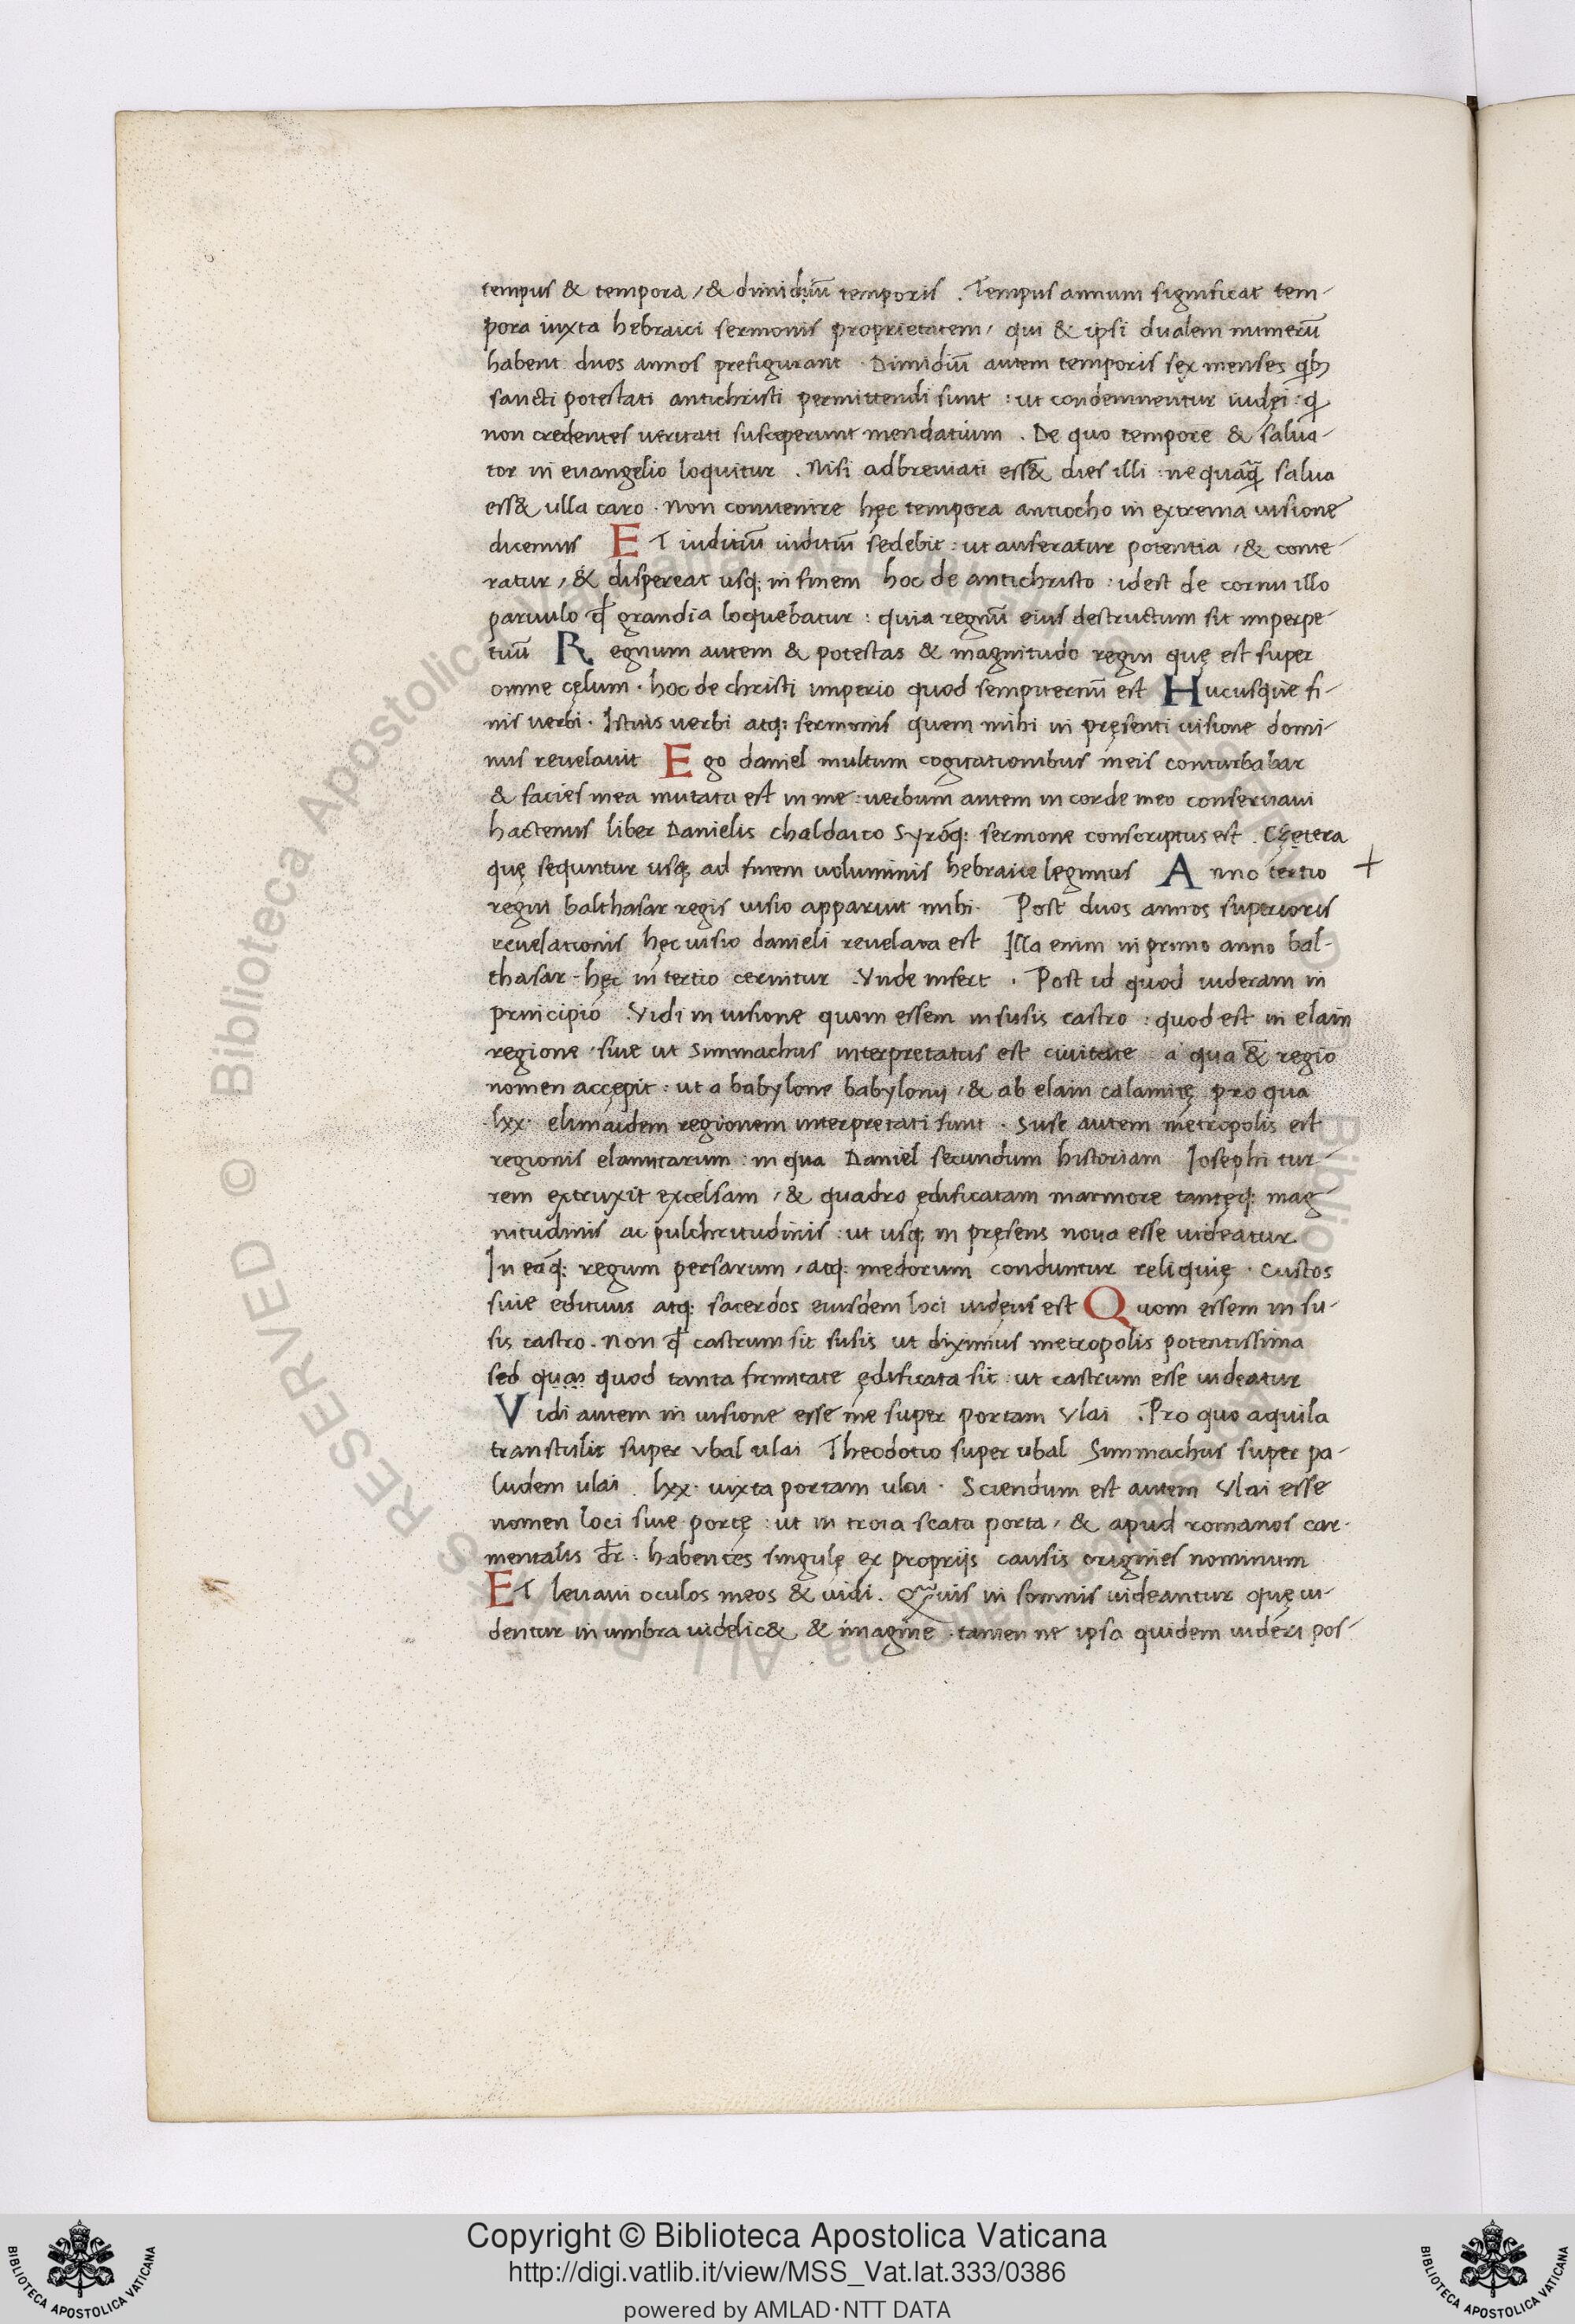 tempus & tempora / & dimidiũ temporis . Tempus annum significat tem-
pora iuxta hebraici sermonis proprietatem / qui & ipsi dualem numerũ
habent duos annos prefigurant . Dimidiũ autem temporis sex menses qbꝫ
sancti potestati antichristi permittendi sunt : ut condemnentur iudęi : q
non credentes veritati susceperunt mendatium . De quo tempore & salua-
tor in euangelio loquitur . Nisi adbreuiati ess& dies illi : ne quãq̃ salua
ess& ulla caro . Non conuenire hęc tempora antiocho in extrema uisione
dicemus ET iuditiũ iuditiũ sedebit : ut auferatur potentia / & conte-
ratur / & dispereat usq; in finem hoc de antichristo : idest de cornu illo
paruulo qđ grandia loquebatur : quia regnũ eius destructum sit imperpe-
tuũ Regnum autem & potestas & magnitudo regni quę est super
omne cęlum . hoc de christi imperio quod sempiternũ est Hucusque fi-
nis verbi . Istius verbi atq; sermonis quem mihi in pręsenti uisione domi-
nus reuelauit Ego daniel multum cogitationibus meis conturbabar
& facies mea mutata est in me : uerbum autem in corde meo conseruaui
hactenus liber Danielis chaldaico Syroq; sermone conscriptus est . Cętera
quę sequntur usq; ad finem uoluminis hebraice legimus Anno tertio +
regni balthasar regis uisio apparuit mihi . Post duos annos superioris
reuelationis hęc uisio danieli reuelata est Illa enim in primo anno bal-
thasar - hęc in tertio cernitur . Vnde infert . Post id quod uideram in
principio . Vidi in uisione quom essem in susis castro : quod est in elam
regione . siue ut Simmachus interpretatus est ciuitate a qua & regio
nomen accępit : ut a babylone babylonij / & ab elam elamitę pro qua
lxx . elimaidem regionem interpretati sunt . Suse autem metropolis est
regionis elamitarum : in qua Daniel secundum historiam Iosephi tur-
rem extruxit excelsam / & quadro ędificatam marmore tantęq; mag-
nitudinis ac pulchritudinis : ut usq; in pręsens noua esse uideatur
In eaq; regum persarum / atq; medorum conduntur reliquię . Custos
siue edituus atq; sacerdos eiusdem loci iudęus est Quom essem in su-
sis castro . Non qđ castrum sit susis ut diximus metropolis potentissima
sed quas quod tanta firmitate ędificata sit : ut castrum esse uideatur
Vidi autem in uisione esse me super portam Vlai . Pro quo aquila
transtulit super Vbal ulai Theodotio super ubal Simmachus super pa-
ludem ulai . lxx . iuxta portam ulai . Sciendum est autem Vlai esse
nomen loci siue portę : ut in troia scata porta / & apud romanos car-
mentalis dr̃ : habentes singulę ex proprijs causis origines nominum
ET leuaui oculos meos & uidi . Q̃uis in somnis uideantur quę ui-
dentur in umbra uidelic& & imagine . tamen ne ipsa quidem uideri pos-
Copyright © Biblioteca Apostolica Vaticana
http://digi.vatlib.it/view/MSS_Vat.lat.333/0386
powered by AMLAD·NTT DATA